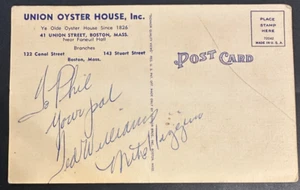 UNION OYSTER HOUSE, Inc.
Ye Olde Oyster House Since 1826
41 UNION STREET, BOSTON, MASS.
Near Faneuil Hall
Branches
122 Canal Street 143 Stuart Street
Boston, Mass.
POST CARD
PLACE
STAMP
HERE
MADE IN U.S.A.
To Phil
Your pal
Ted Williams